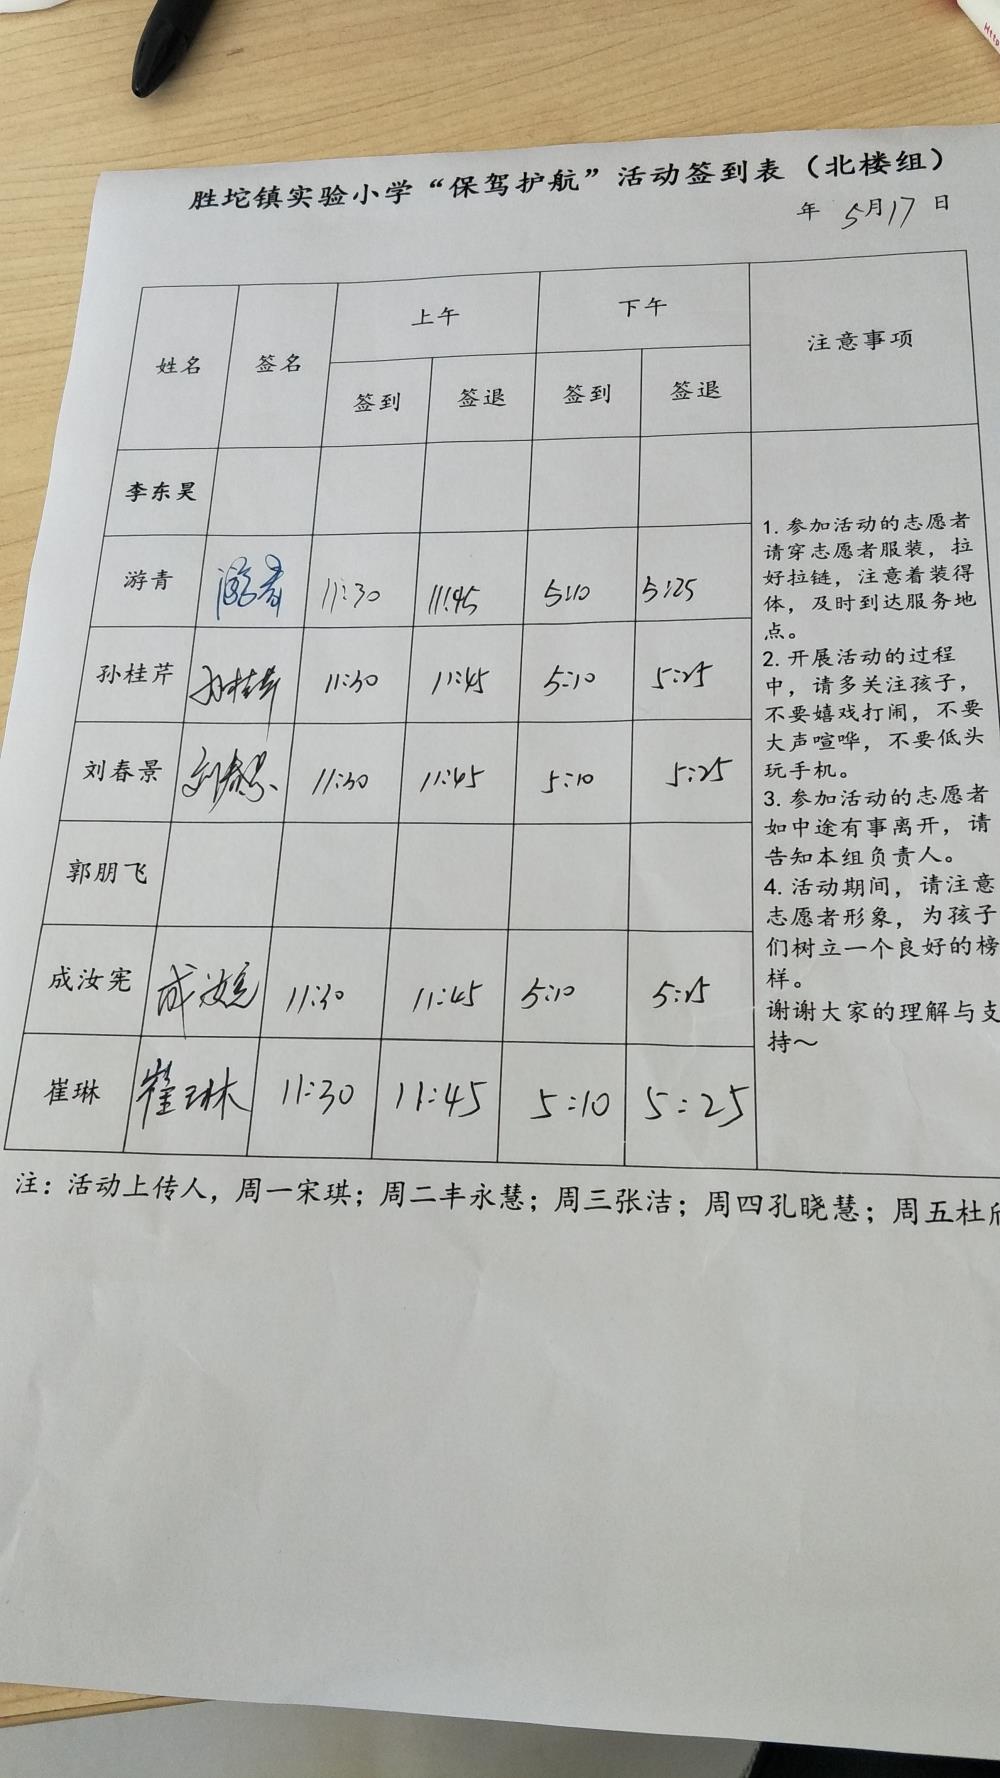 胜坨镇实验小学“保驾护航”活动签到表（北楼组）
年 5月17日
姓名 签名 上午 下午 注意事项
签到 签退 签到 签退
李东昊
游青 游青 11:30 11:45 5:10 5:25
孙桂芹 孙桂芹 11:30 11:45 5:10 5:25
刘春景 刘春景 11:30 11:45 5:10 5:25
郭朋飞
成汝宪 成汝宪 11:30 11:45 5:10 5:25
崔琳 崔琳 11:30 11:45 5:10 5:25
1. 参加活动的志愿者
请穿志愿者服装，拉
好拉链，注意着装得
体，及时到达服务地
点。
2. 开展活动的过程
中，请多关注孩子，
不要嬉戏打闹，不要
大声喧哗，不要低头
玩手机。
3. 参加活动的志愿者
如中途有事离开，请
告知本组负责人。
4. 活动期间，请注意
志愿者形象，为孩子
们树立一个良好的榜
样。
谢谢大家的理解与支
持～
注：活动上传人，周一宋琪；周二丰永慧；周三张洁；周四孔晓慧；周五杜